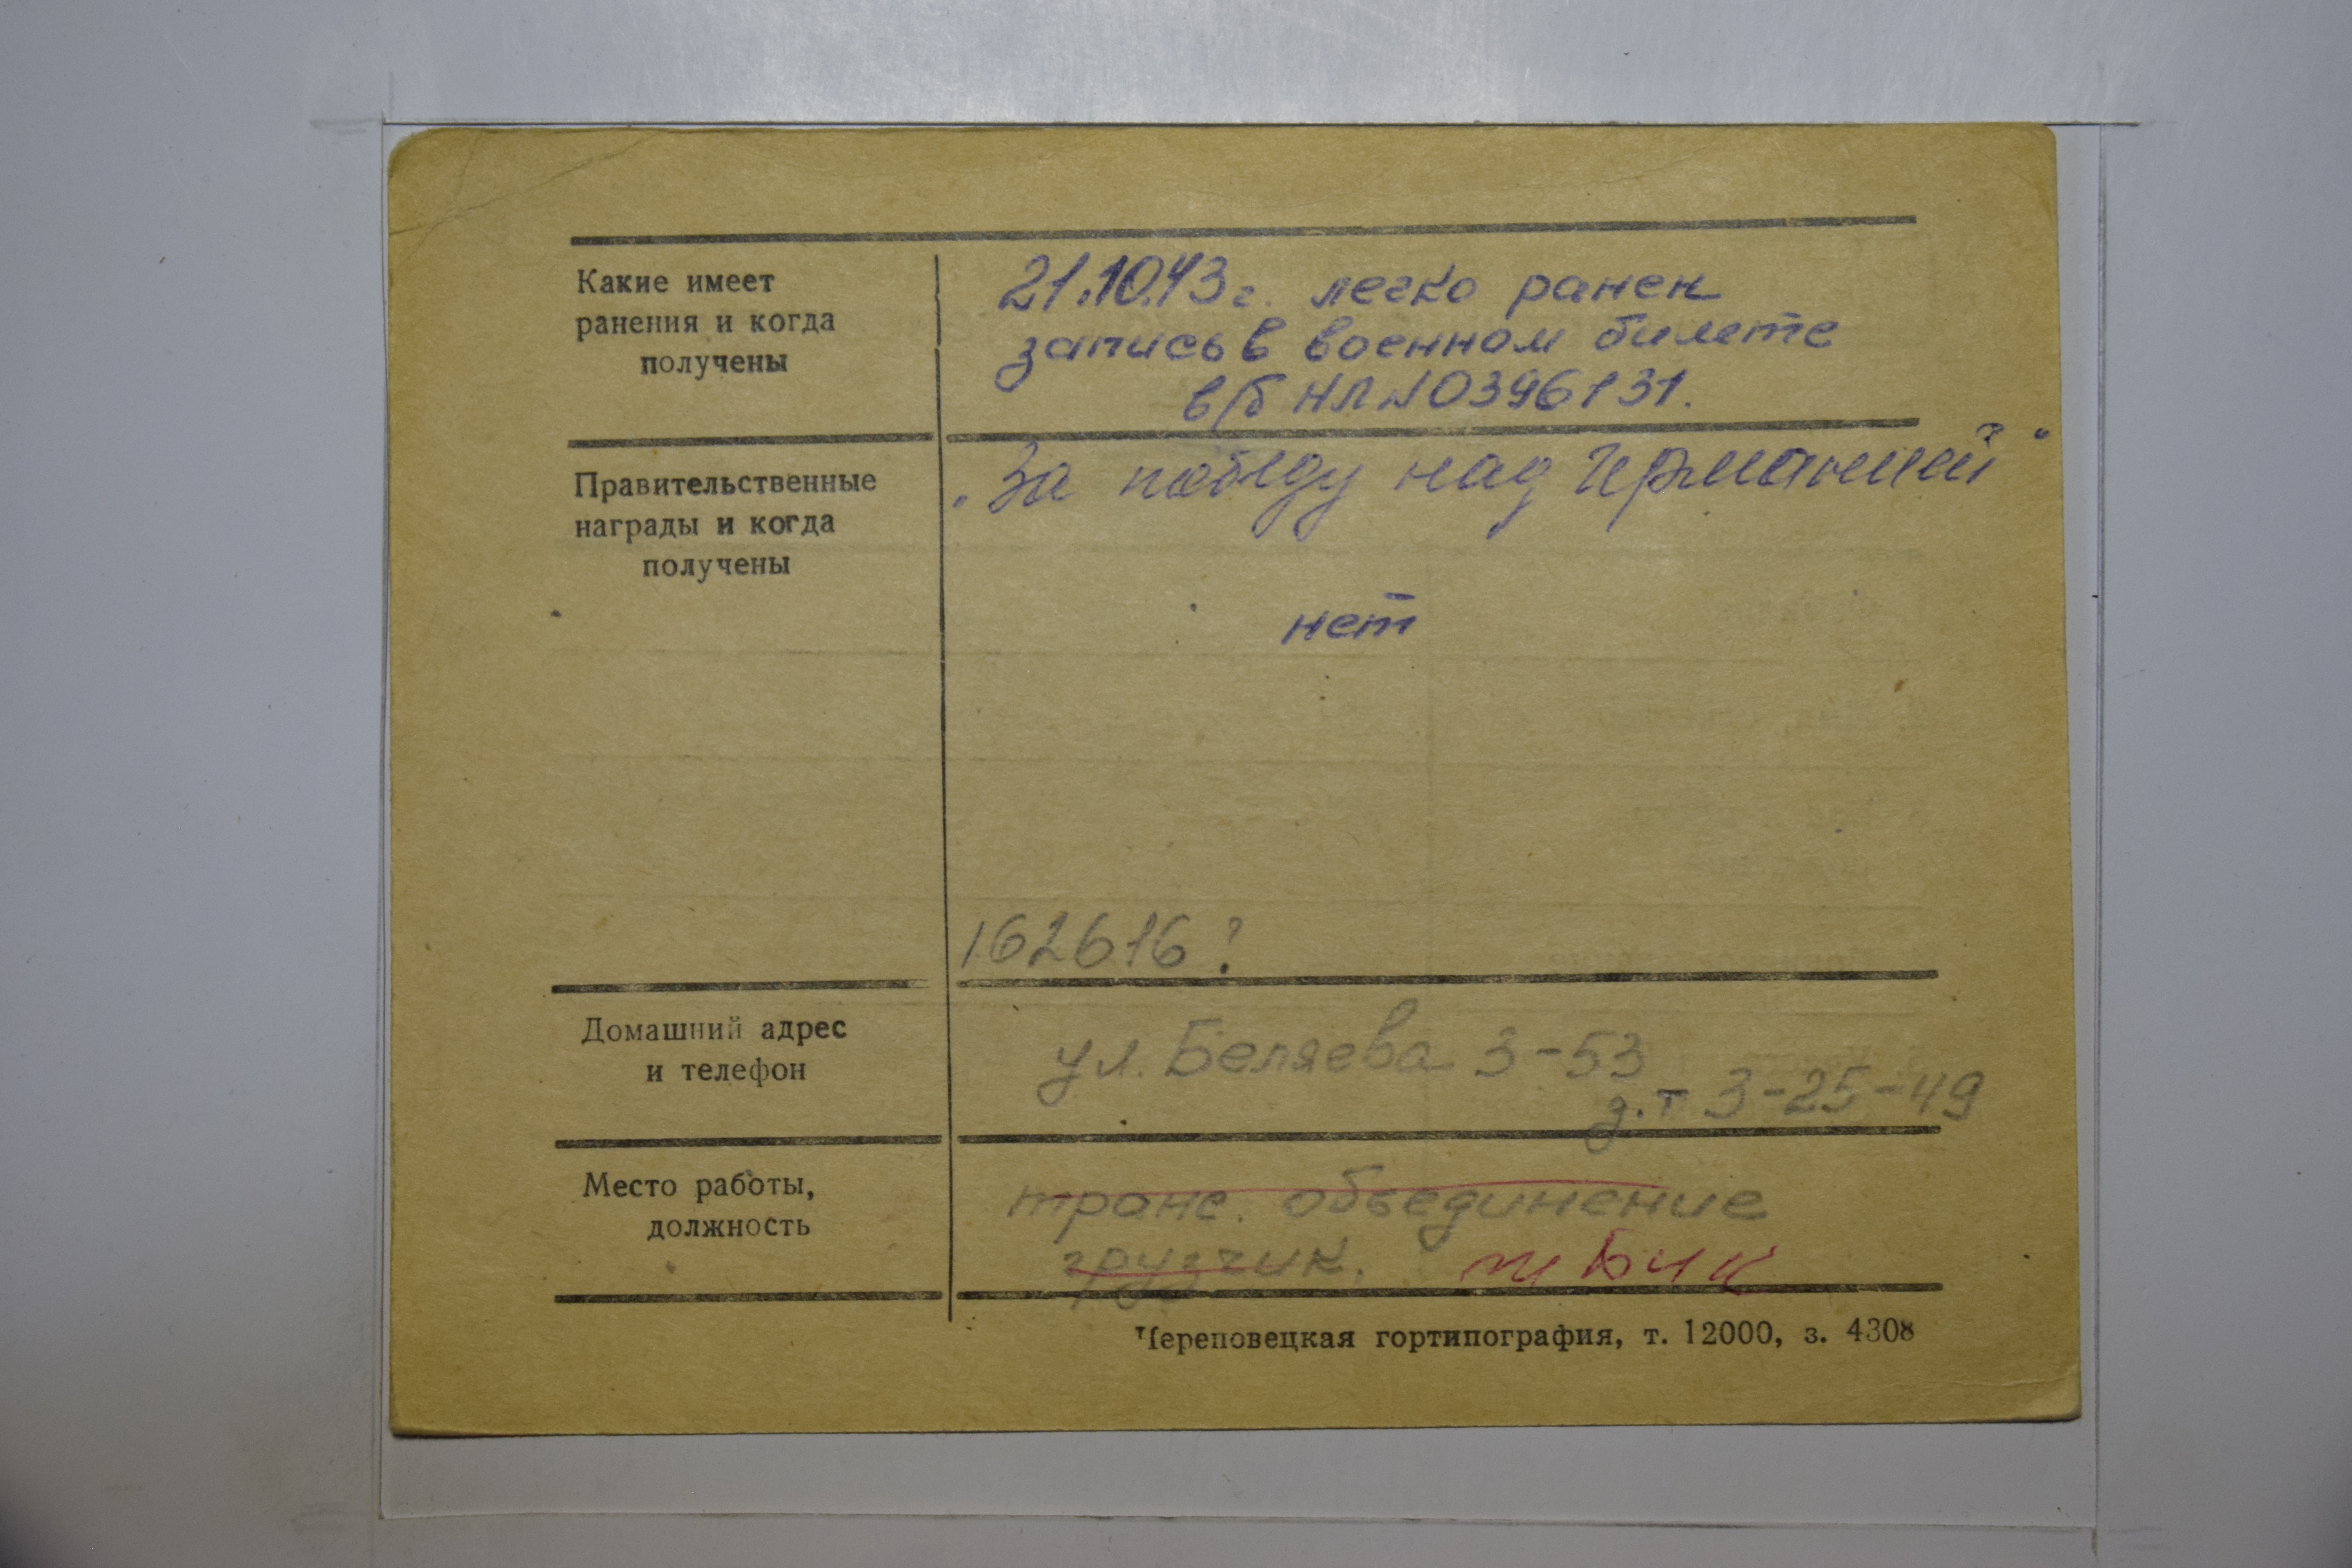 Какие имеет
ранения и когда
получены
21.10.43г. легко ранен
запись в военном билете
в/б НЛ № 0396131.
Правительственные
награды и когда
получены
„За победу над Германией“
нет
162616?
Домашний адрес
и телефон
ул. Беляева 3-53
д.т 3-25-49
Место работы,
должность
транс. объединение
грузчик.
Череповецкая гортипография, т. 12000, з. 4308